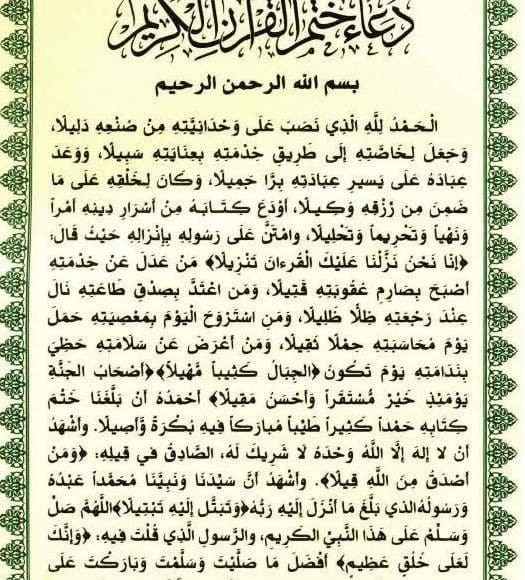 دُعَاءُ خَتْمِ القُرْآنِ الكَرِيمِ
بسم الله الرحمن الرحيم
الْـحَمْدُ لِلَّهِ الَّذِي نَصَبَ عَلَى وَحْدَانِيَّتِهِ مِنْ صُنْعِهِ دَلِيلًا،
وَجَعَلَ لِخَاصَّتِهِ إِلَى طَرِيقِ خِدْمَتِهِ بِعِنَايَتِهِ سَبِيلًا، وَوَعَدَ
عِبَادَهُ عَلَى يَسِيرِ عِبَادَتِهِ بِرًّا جَمِيلًا، وَكَانَ لِخَلْقِهِ عَلَى مَا
ضَمِنَ مِن رِّزْقِهِ وَكِيلًا، أَوْدَعَ كِتَـابَـهُ مِنْ أَسْرَارِ دِينِهِ أَمْراً
وَنَهْياً وَتَحْرِيماً وَتَحْلِيلًا، وامْتَنَّ عَلَى رَسُولِهِ بِإِنْزَالِهِ حَيْثُ قَالَ:
﴿إِنَّا نَحْنُ نَزَّلْنَا عَلَيْكَ الْقُرءَانَ تَنْزِيلًا﴾ مَنْ عَدَلَ عَنْ خِدْمَتِهِ
أَصْبَحَ بِصَارِمِ عُقُوبَتِهِ قَتِيلًا، وَمَنِ اعْتَدَّ بِصِدْقِ طَاعَتِهِ نَالَ
عِنْدَ رَجْعَتِهِ ظِلًّا ظَلِيلًا، وَمَنِ اسْتَرْوَحَ الْيَوْمَ بِمَعْصِيَتِهِ حَمَلَ
يَوْمَ مُحَاسَبَتِهِ حِمْلًا ثَقِيلًا، وَمَنْ أَعْرَضَ عَنْ سَلَامَتِهِ حَظِيَ
بِنَدَامَتِهِ يَوْمَ تَكُونُ ﴿الجِبَالُ كَثِيباً مَّهِيلاً﴾ ﴿أَصْحَابُ الجَنَّةِ
يَوْمَئِذٍ خَيْرٌ مُّسْتَقَراً وَأَحْسَنُ مَقِيلًا﴾ أَحْمَدُهُ أَنْ بَلَّغَنَا خَتْمَ
كِتَابِهِ حَمْداً كَثِيراً طَيِّباً مُبَارَكاً فِيهِ بُكْرَةً وَّأَصِيلًا. وأَشْهَدُ
أَنْ لا إِلهَ إِلَّا اللَّهُ وَحْدَهُ لا شَرِيكَ لَهُ، الصَّادِقُ فِي قِيلِهِ: ﴿وَمَنْ
أَصْدَقُ مِنَ اللَّهِ قِيلًا﴾. وأَشْهَدُ أَنَّ سَيِّدَنَا وَنَبِيَّنَا مُحَمَّداً عَبْدُهُ
وَرَسُولُهُ الذي بَلَّغَ مَا أَنْزَلَ إِلَيْهِ رَبُّهُ ﴿وَتَبَتَّلْ إِلَيْهِ تَبْتِيلًا﴾ اللَّهُمَّ صَلِّ
وَسَلِّمْ عَلَى هَذَا النَّبِيِّ الكَرِيمِ، والرَّسُولِ الَّذِي قُلْتَ فِيهِ: ﴿وَإِنَّكَ
لَعَلَى خُلُقٍ عَظِيمٍ﴾ أَفْضَلَ مَا صَلَّيْتَ وَسَلَّمْتَ وَبَارَكْتَ عَلَى